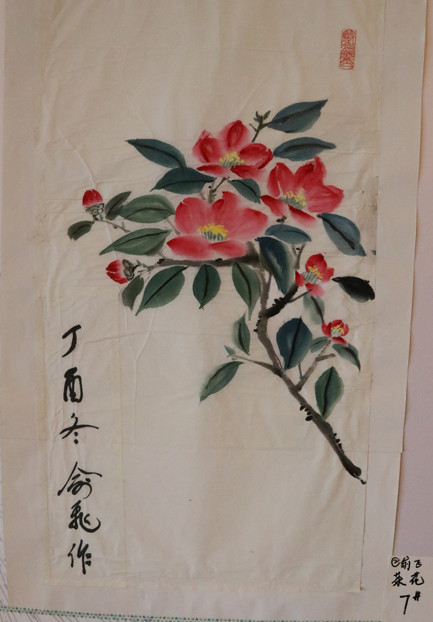 丁酉冬俞飛作
俞飞
茶花
7#